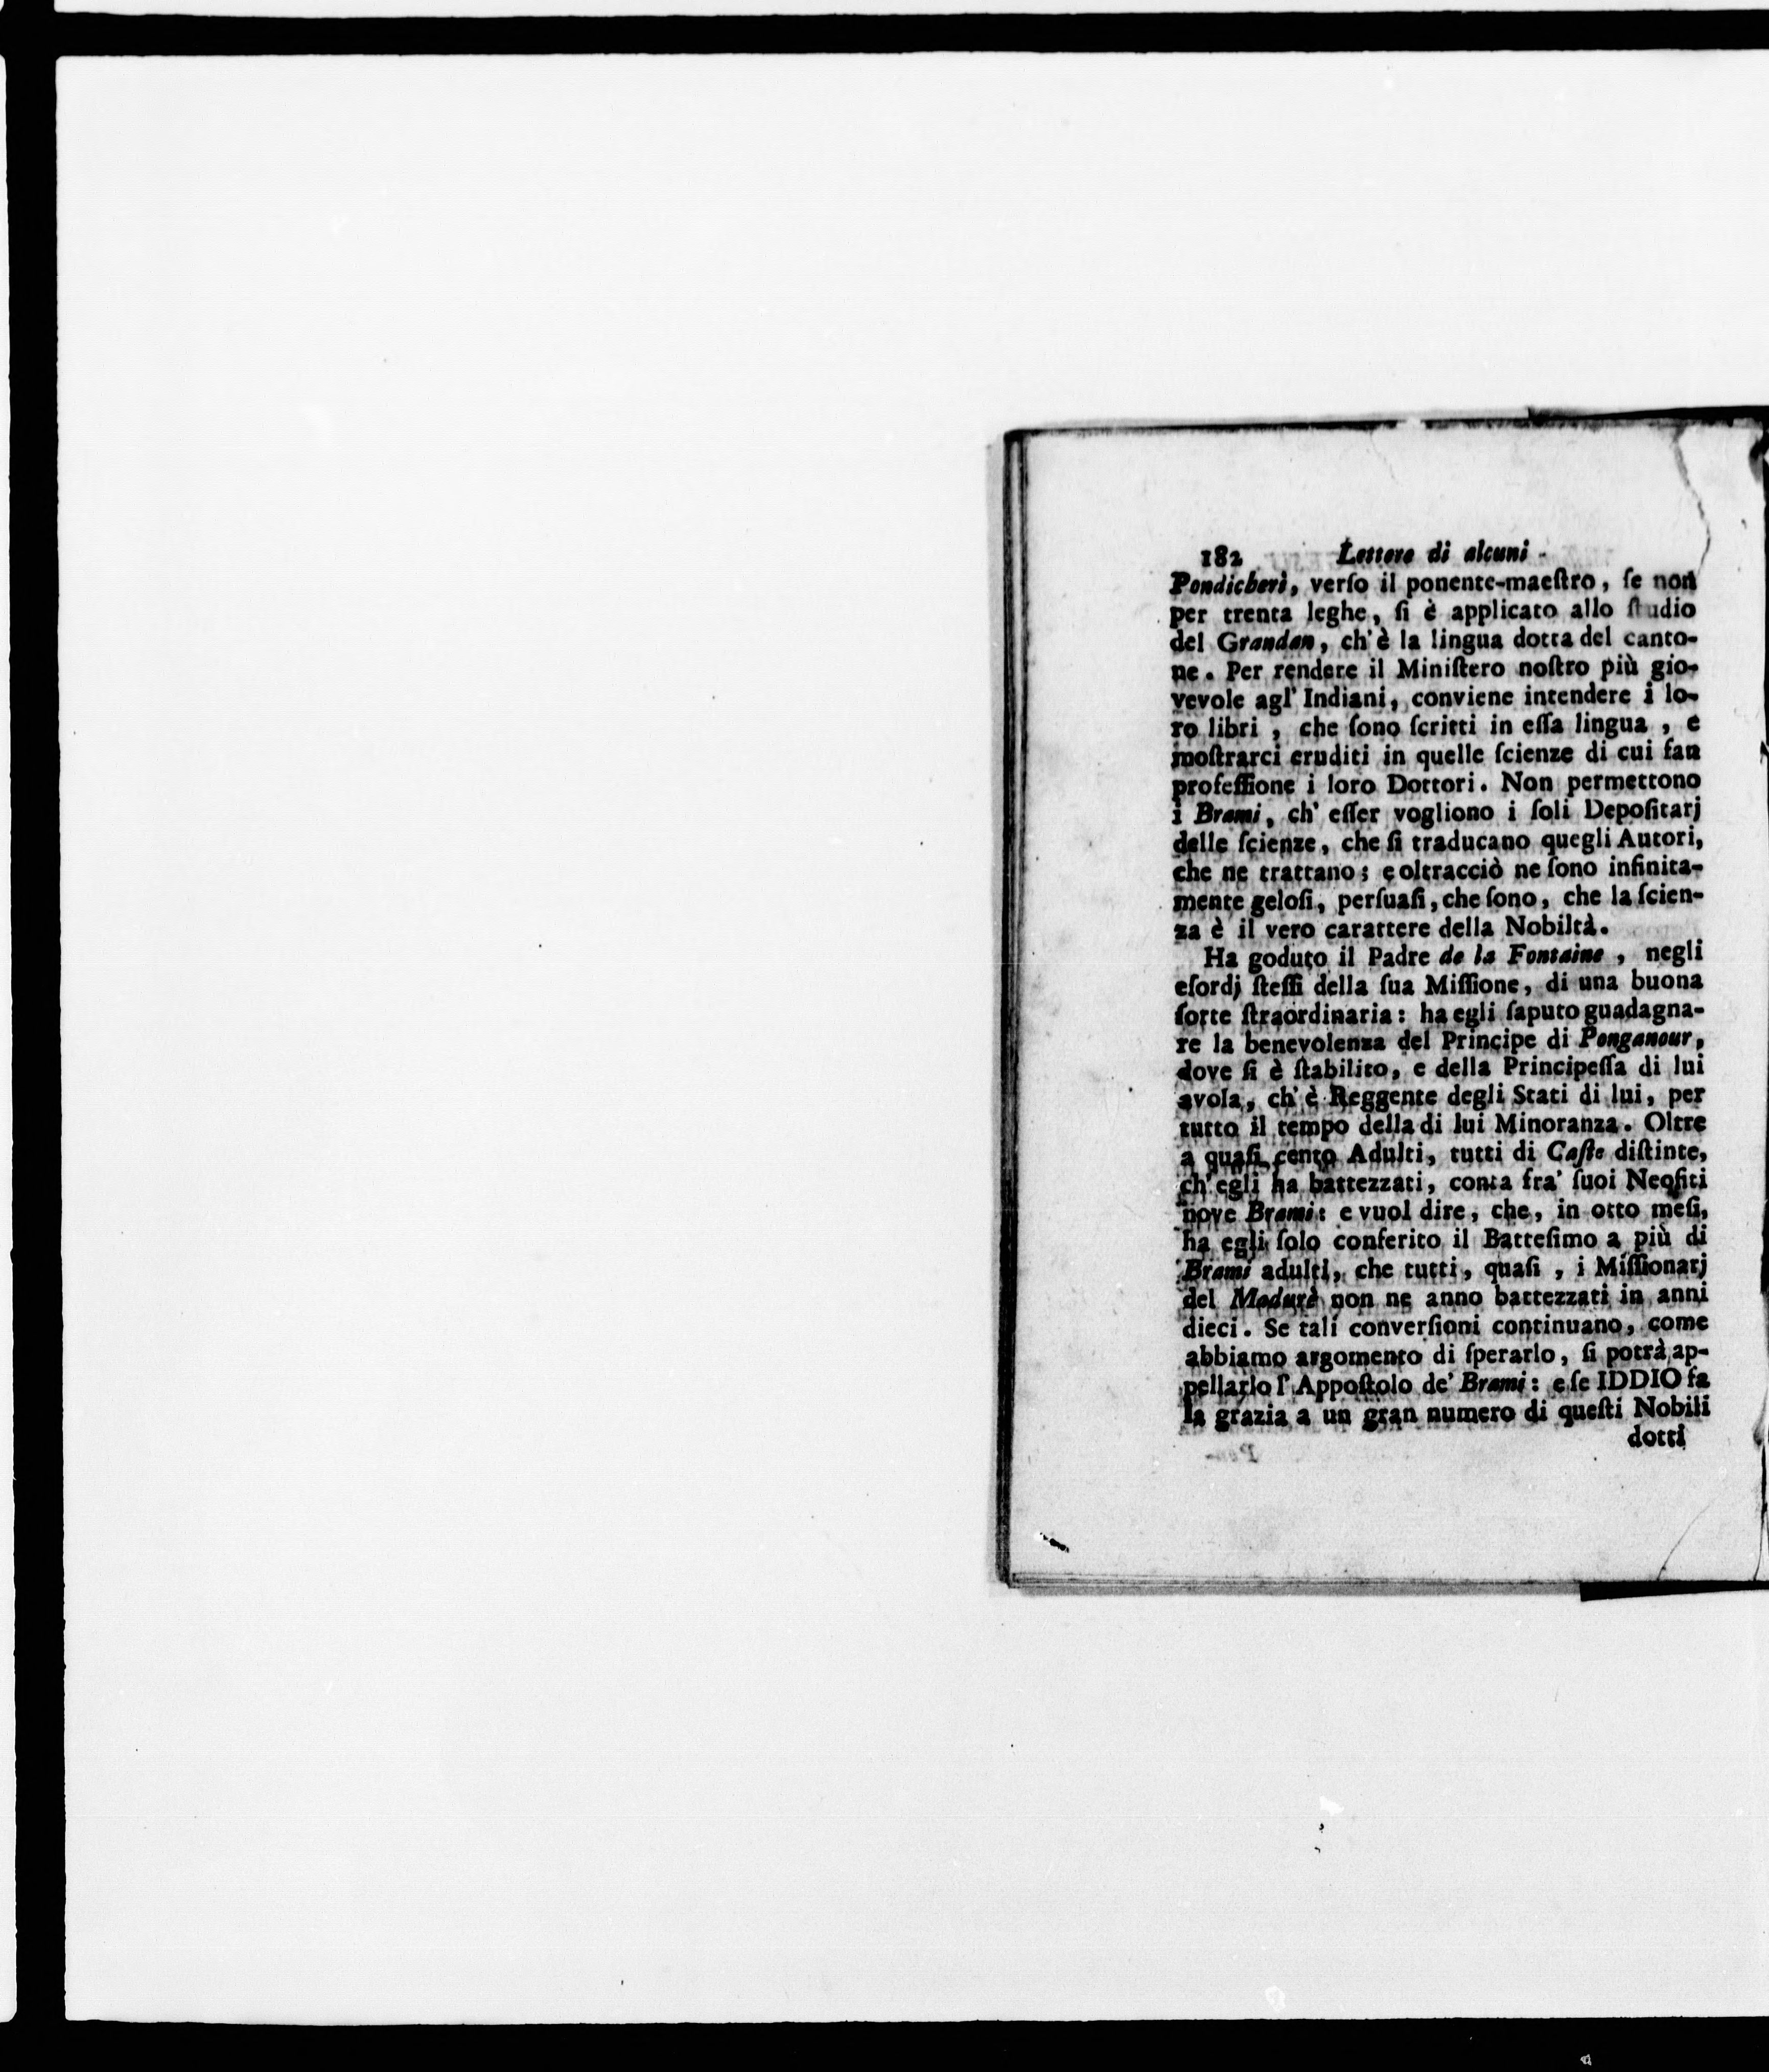 182 Lettere di alcuni
Pondicherì, verſo il ponente-maeſtro, ſe non
per trenta leghe, ſi è applicato allo ſtudio
del Grandan, ch'è la lingua dotta del canto-
ne. Per rendere il Miniſtero noſtro più gio-
vevole agl' Indiani, conviene intendere i lo-
ro libri, che ſono ſcritti in eſſa lingua, e
moſtrarci eruditi in quelle ſcienze di cui fan
profeſſione i loro Dottori. Non permettono
i Brami, ch' eſſer vogliono i ſoli Depoſitarj
delle ſcienze, che ſi traducano quegli Autori,
che ne trattano; e oltracciò ne ſono infinita-
mente geloſi, perſuaſi, che ſono, che la ſcien-
za è il vero carattere della Nobiltà.
Ha goduto il Padre de la Fontaine, negli
eſordj ſteſſi della ſua Miſſione, di una buona
ſorte ſtraordinaria: ha egli ſaputo guadagna-
re la benevolenza del Principe di Ponganour,
dove ſi è ſtabilito, e della Principeſſa di lui
avola, ch'è Reggente degli Stati di lui, per
tutto il tempo della di lui Minoranza. Oltre
a quaſi cento Adulti, tutti di Caſte diſtinte,
ch'egli ha battezzati, conta fra' ſuoi Neofiti
nove Brami: e vuol dire, che, in otto meſi,
ha egli ſolo conferito il Batteſimo a più di
Brami adulti, che tutti, quaſi, i Miſſionarj
del Madurè non ne anno battezzati in anni
dieci. Se tali converſioni continuano, come
abbiamo argomento di ſperarlo, ſi potrà ap-
pellarlo l' Appoſtolo de' Brami: e ſe IDDIO fa
la grazia a un gran numero di queſti Nobili
dotti